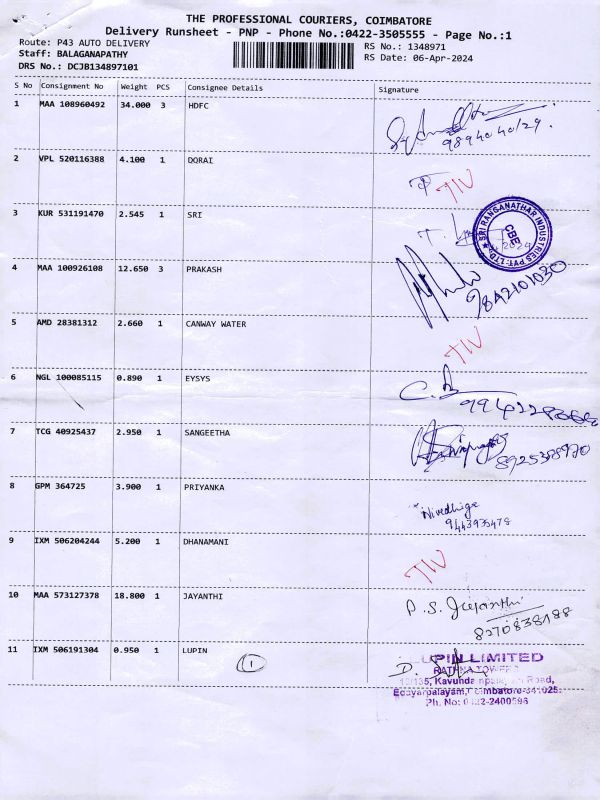 THE PROFESSIONAL COURIERS, COIMBATORE
Delivery Runsheet - PNP - Phone No.:0422-3505555 - Page No.:1
Route: P43 AUTO DELIVERY
RS No.: 1348971
Staff: BALAGANAPATHY
RS Date: 06-Apr-2024
DRS No.: DCJB134897101
S No Consignment No Weight PCS Consignee Details Signature
1 MAA 108960492 34.000 3 HDFC
9894040129.
2 VPL 520116388 4.100 1 DORAI
TIV
3 KUR 531191470 2.545 1 SRI
SRI RANGANATHAR INDUSTRIES PVT. LTD. ★
CBE
4 MAA 100926108 12.650 3 PRAKASH
9842101030
5 AMD 28381312 2.660 1 CANWAY WATER
TIV
6 NGL 100085115 0.890 1 EYSYS
7 TCG 40925437 2.950 1 SANGEETHA
8 GPM 364725 3.900 1 PRIYANKA
Nivedhiga
9443935478
9 IXM 506204244 5.200 1 DHANAMANI
TIV
10 MAA 573127378 18.800 1 JAYANTHI
P. S. Jeyanthi
8270838188
11 IXM 506191304 0.950 1 LUPIN
1
LUPIN LIMITED
Road,
Coimbatore-641025.
Ph. No: 0422-2400596